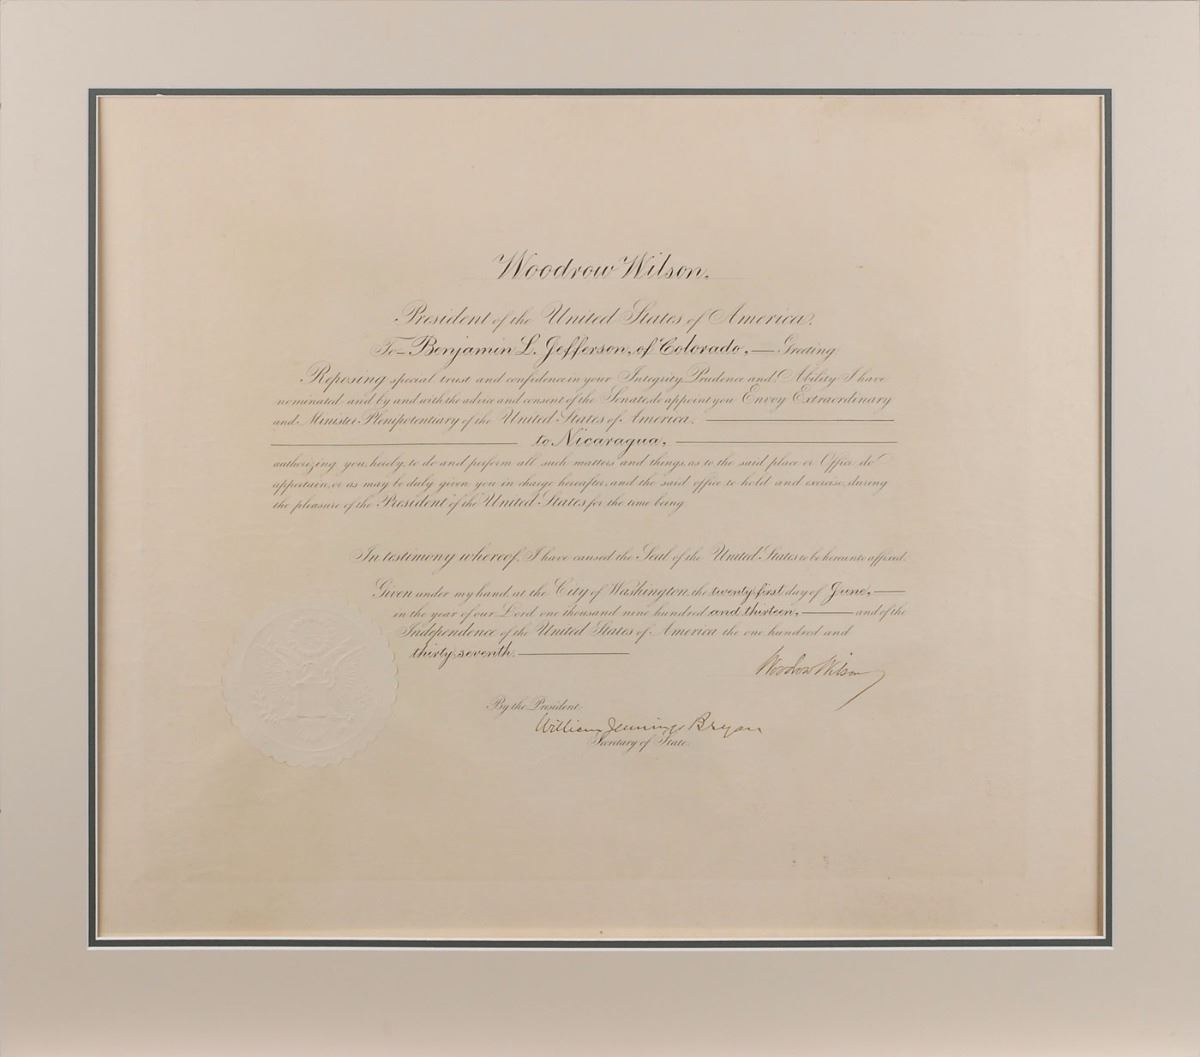 Woodrow Wilson.
President of the United States of America.
To Benjamin L. Jefferson, of Colorado, — Greeting
Reposing special trust and confidence in your Integrity, Prudence and Ability I have
nominated and by and with the advice and consent of the Senate, do appoint you Envoy Extraordinary
and Minister Plenipotentiary of the United States of America,
to Nicaragua,
authorizing you, hereby, to do and perform all such matters and things, as to the said place or Office do
appertain, or as may be duly given you in charge hereafter, and the said office to hold and exercise, during
the pleasure of the President of the United States for the time being
In testimony whereof, I have caused the Seal of the United States to be hereunto affixed.
Given under my hand, at the City of Washington, the twenty first day of June, —
in the year of our Lord one thousand nine hundred and thirteen, — and of the
Independence of the United States of America the one hundred and
thirty seventh. —
Woodrow Wilson
By the President:
William Jennings Bryan
Secretary of State.